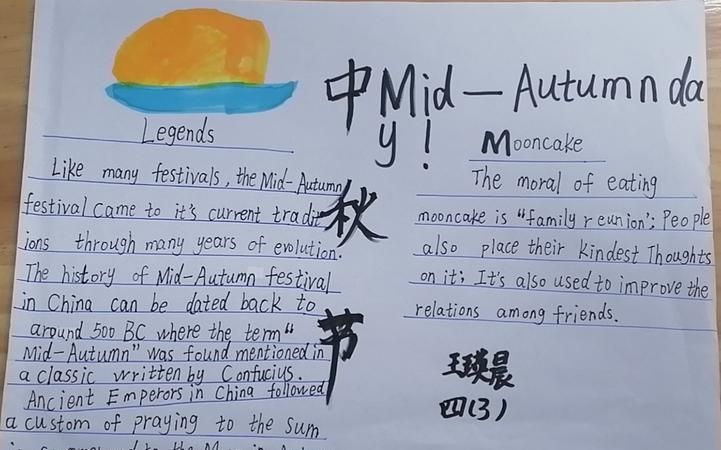 中
Mid-Autumn da
y!
秋
节
Legends
Like many festivals, the Mid-Autumn
festival came to it's current tradit
ions through many years of evolution.
The history of Mid-Autumn festival
in China can be dated back to
around 500 BC where the term "
Mid-Autumn" was found mentioned in
a classic written by Confucius.
Ancient Emperors in China followed
a custom of praying to the Sum
Mooncake
The moral of eating
mooncake is "family reunion"; People
also place their kindest Thoughts
on it; It's also used to improve the
relations among friends.
王瑛晨
四(3)